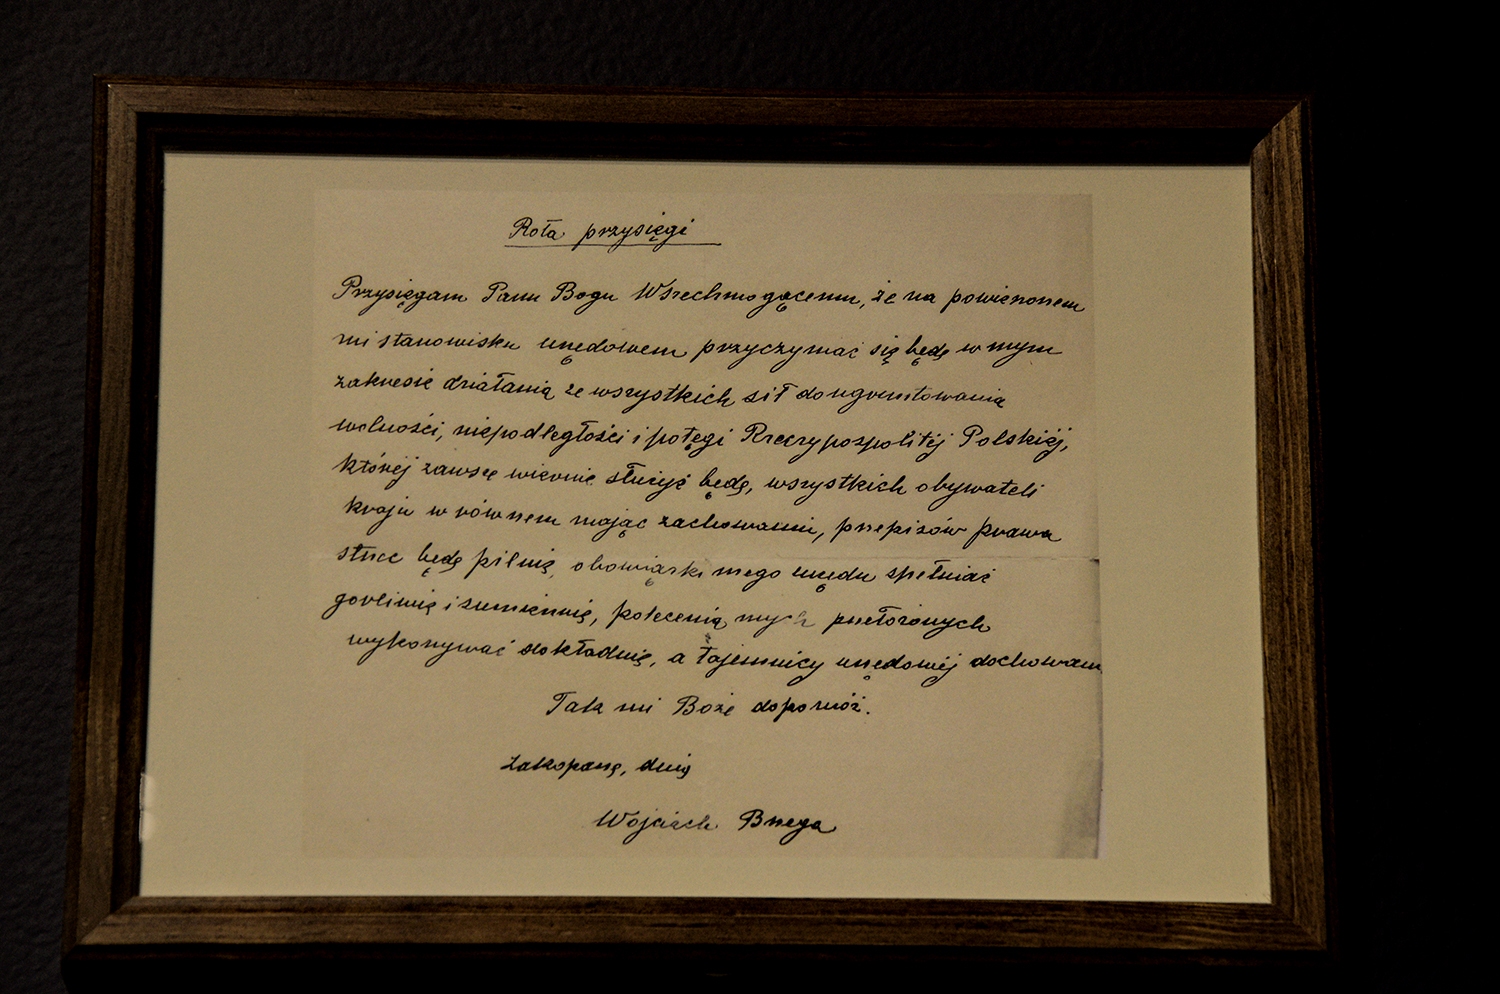 Rota przysięgi
Przysięgam Panu Bogu Wszechmogącemu, że na powierzonem
mi stanowisku urzędowem przyczyniać się będę w mym
zakresie działania ze wszystkich sił do ugruntowania
wolności, niepodległości i potęgi Rzeczypospolitej Polskiej,
której zawsze wiernie służyć będę, wszystkich obywateli
kraju w równem mając zachowaniu, przepisów prawa
strzec będę pilnie, obowiązki mego urzędu spełniać
gorliwie i sumiennie, polecenia mych przełożonych
wykonywać dokładnie, a tajemnicy urzędowej dochowam.
Tak mi Boże dopomóż.
Zakopane, dnia
Wojciech Brzega